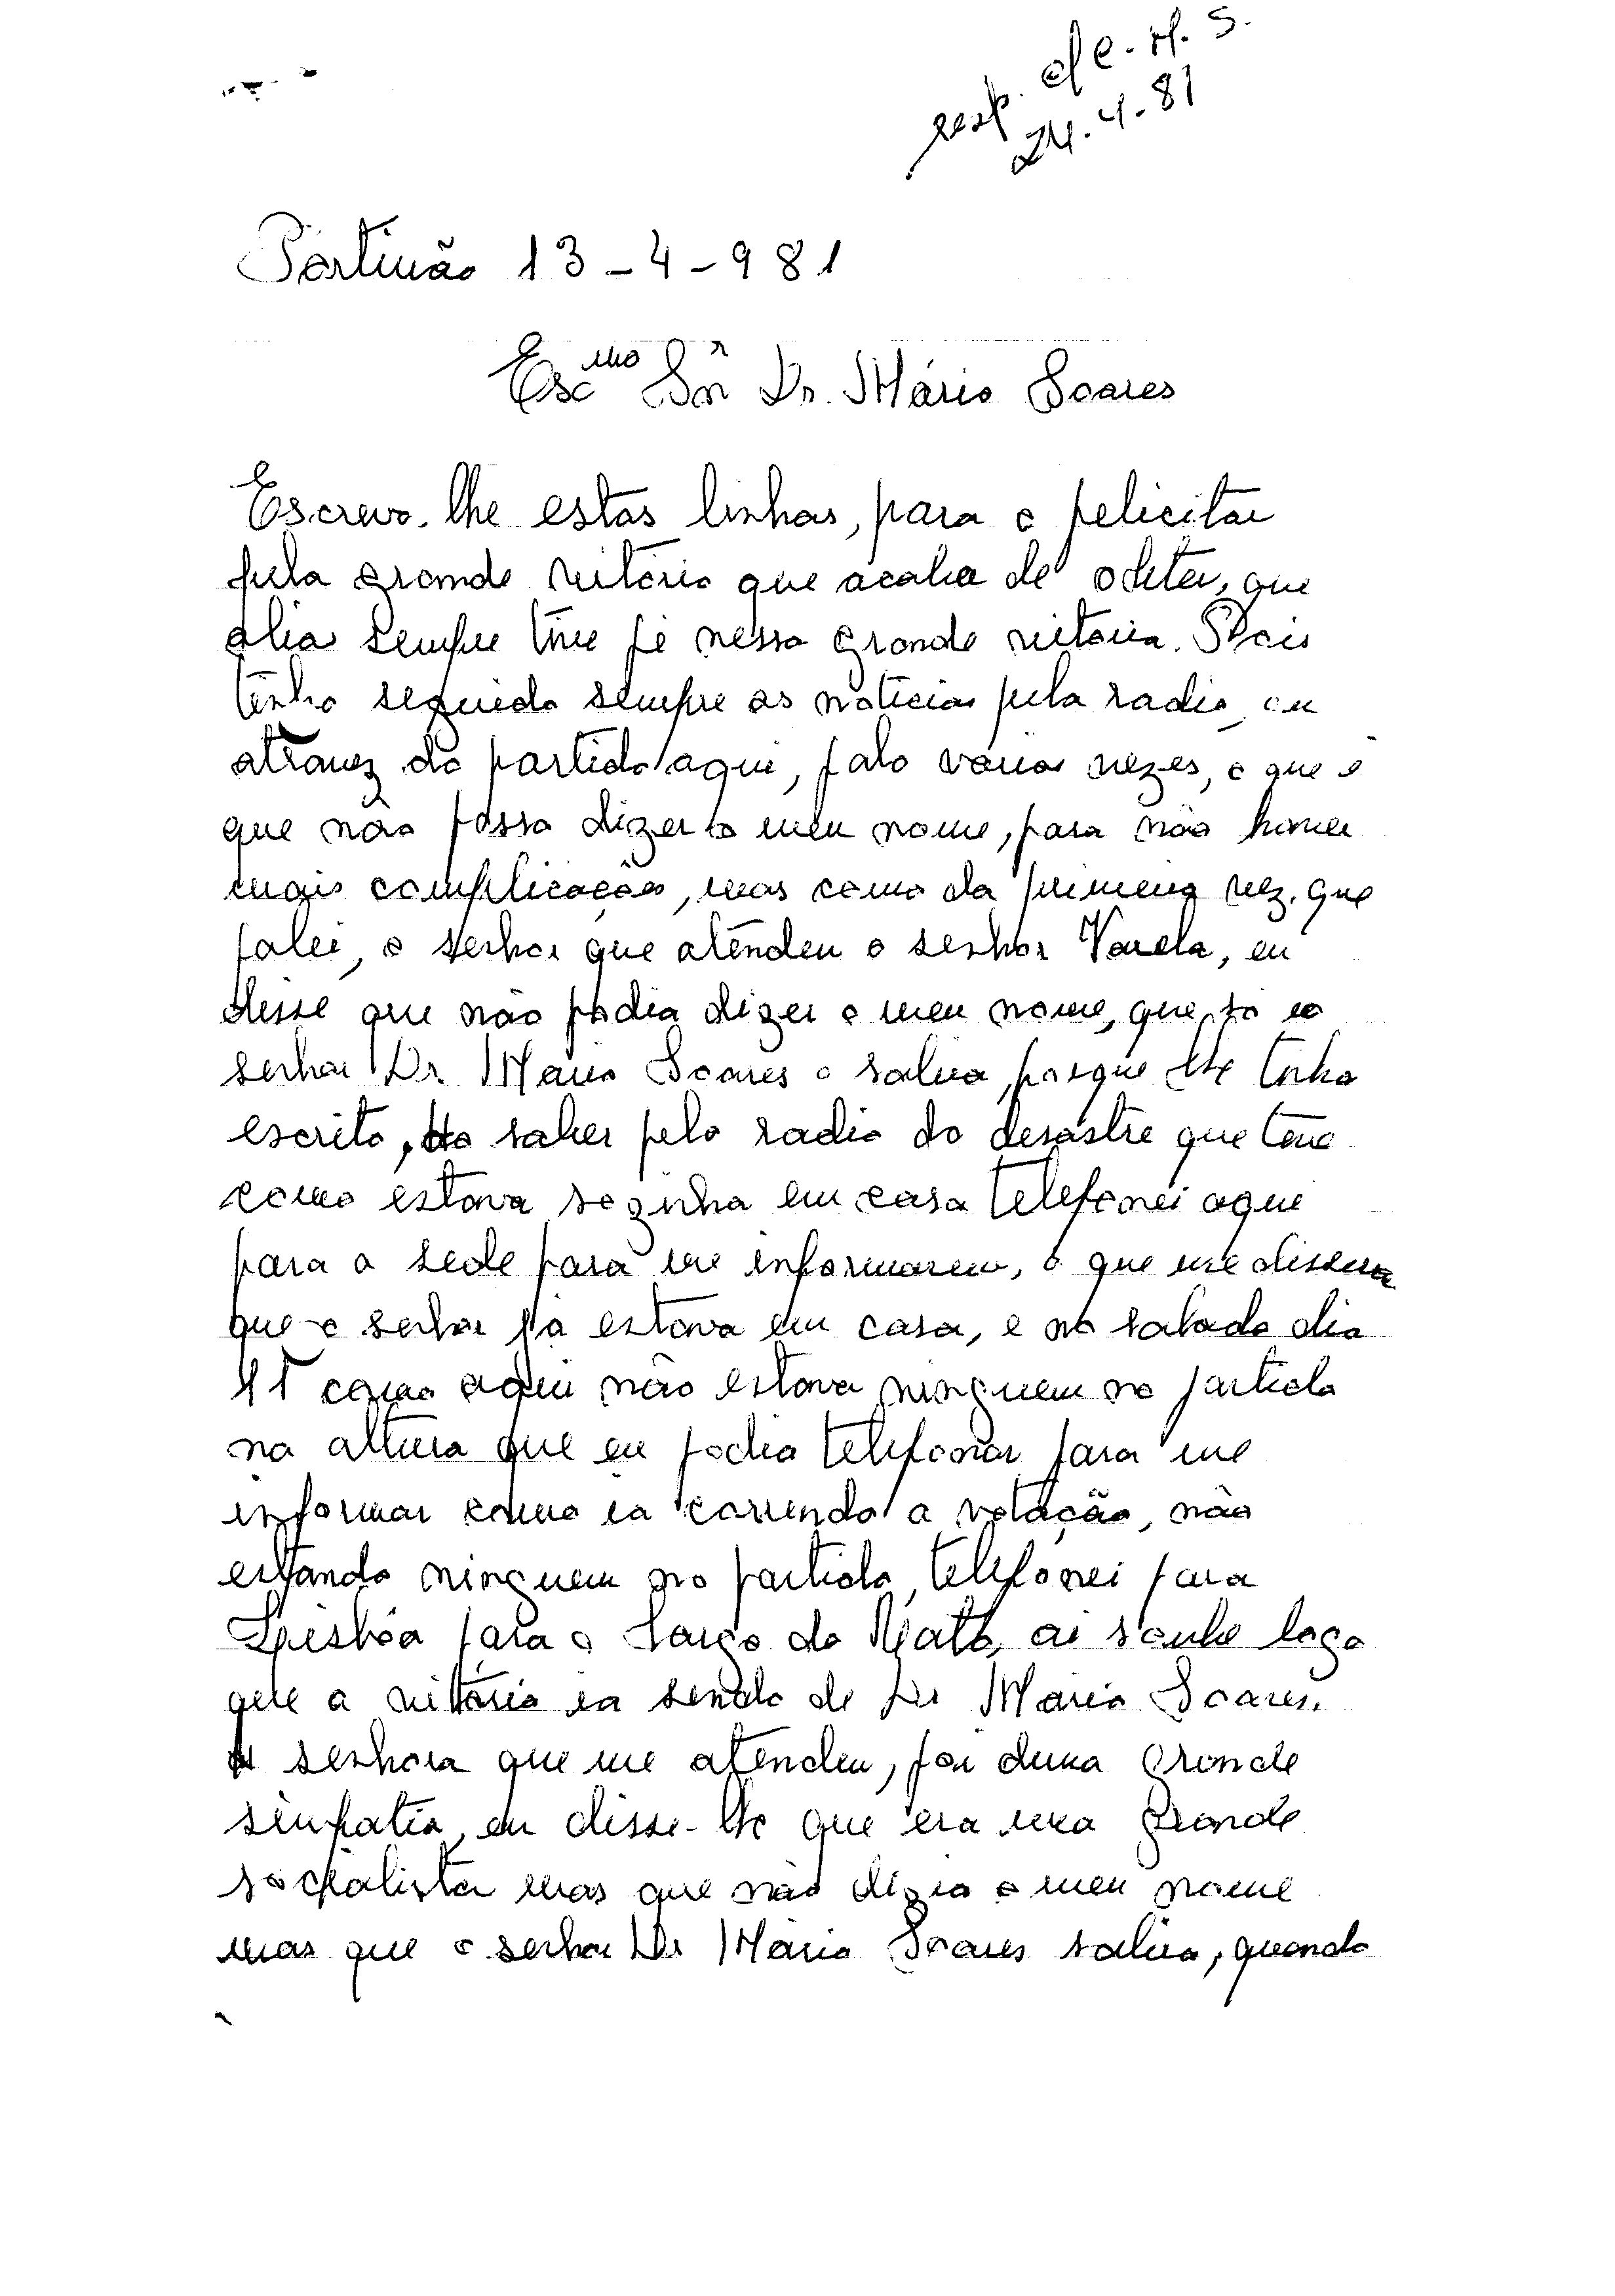 resp. c/ c. M. S.
24.4.81
Portimão 13-4-981
Escmo Snr Dr. Mário Soares
Escrevo-lhe estas linhas, para o felicitar
pela grande vitória que acaba de obter, que
alia sempre tive fé nessa grande vitoria. Pois
tenho seguido sempre as noticias pela radio, ou
atravez do partido aqui, falo varias vezes, o que é
que não possa dizer o meu nome, para não haver
mais complicações, mas como da primeira vez que
falei, o senhor que atendeu o senhor Varela, eu
disse que não podia dizer o meu nome, que só o
senhor Dr. Mario Soares o sabia, porque lhe tinha
escrito, ao saber pela radio do desastre que teve
como estava sozinha em casa telefonei aqui
para a sede para me informarem, o que me disseram
que o senhor já estava em casa, e no sabado dia
11 como aqui não estava ninguem no partido
na altura que eu podia telefonar para me
informar como ia correndo a votação, não
estando ninguem no partido, telefonei para
Lisbôa para o Largo do Rato, ai soube logo
que a vitória ia sendo de Dr Mario Soares.
A senhora que me atendeu, foi duma grande
simpatia, eu disse-lhe que era uma grande
socialista mas que não dizia o meu nome
mas que o senhor Dr Mário Soares sabia, quando